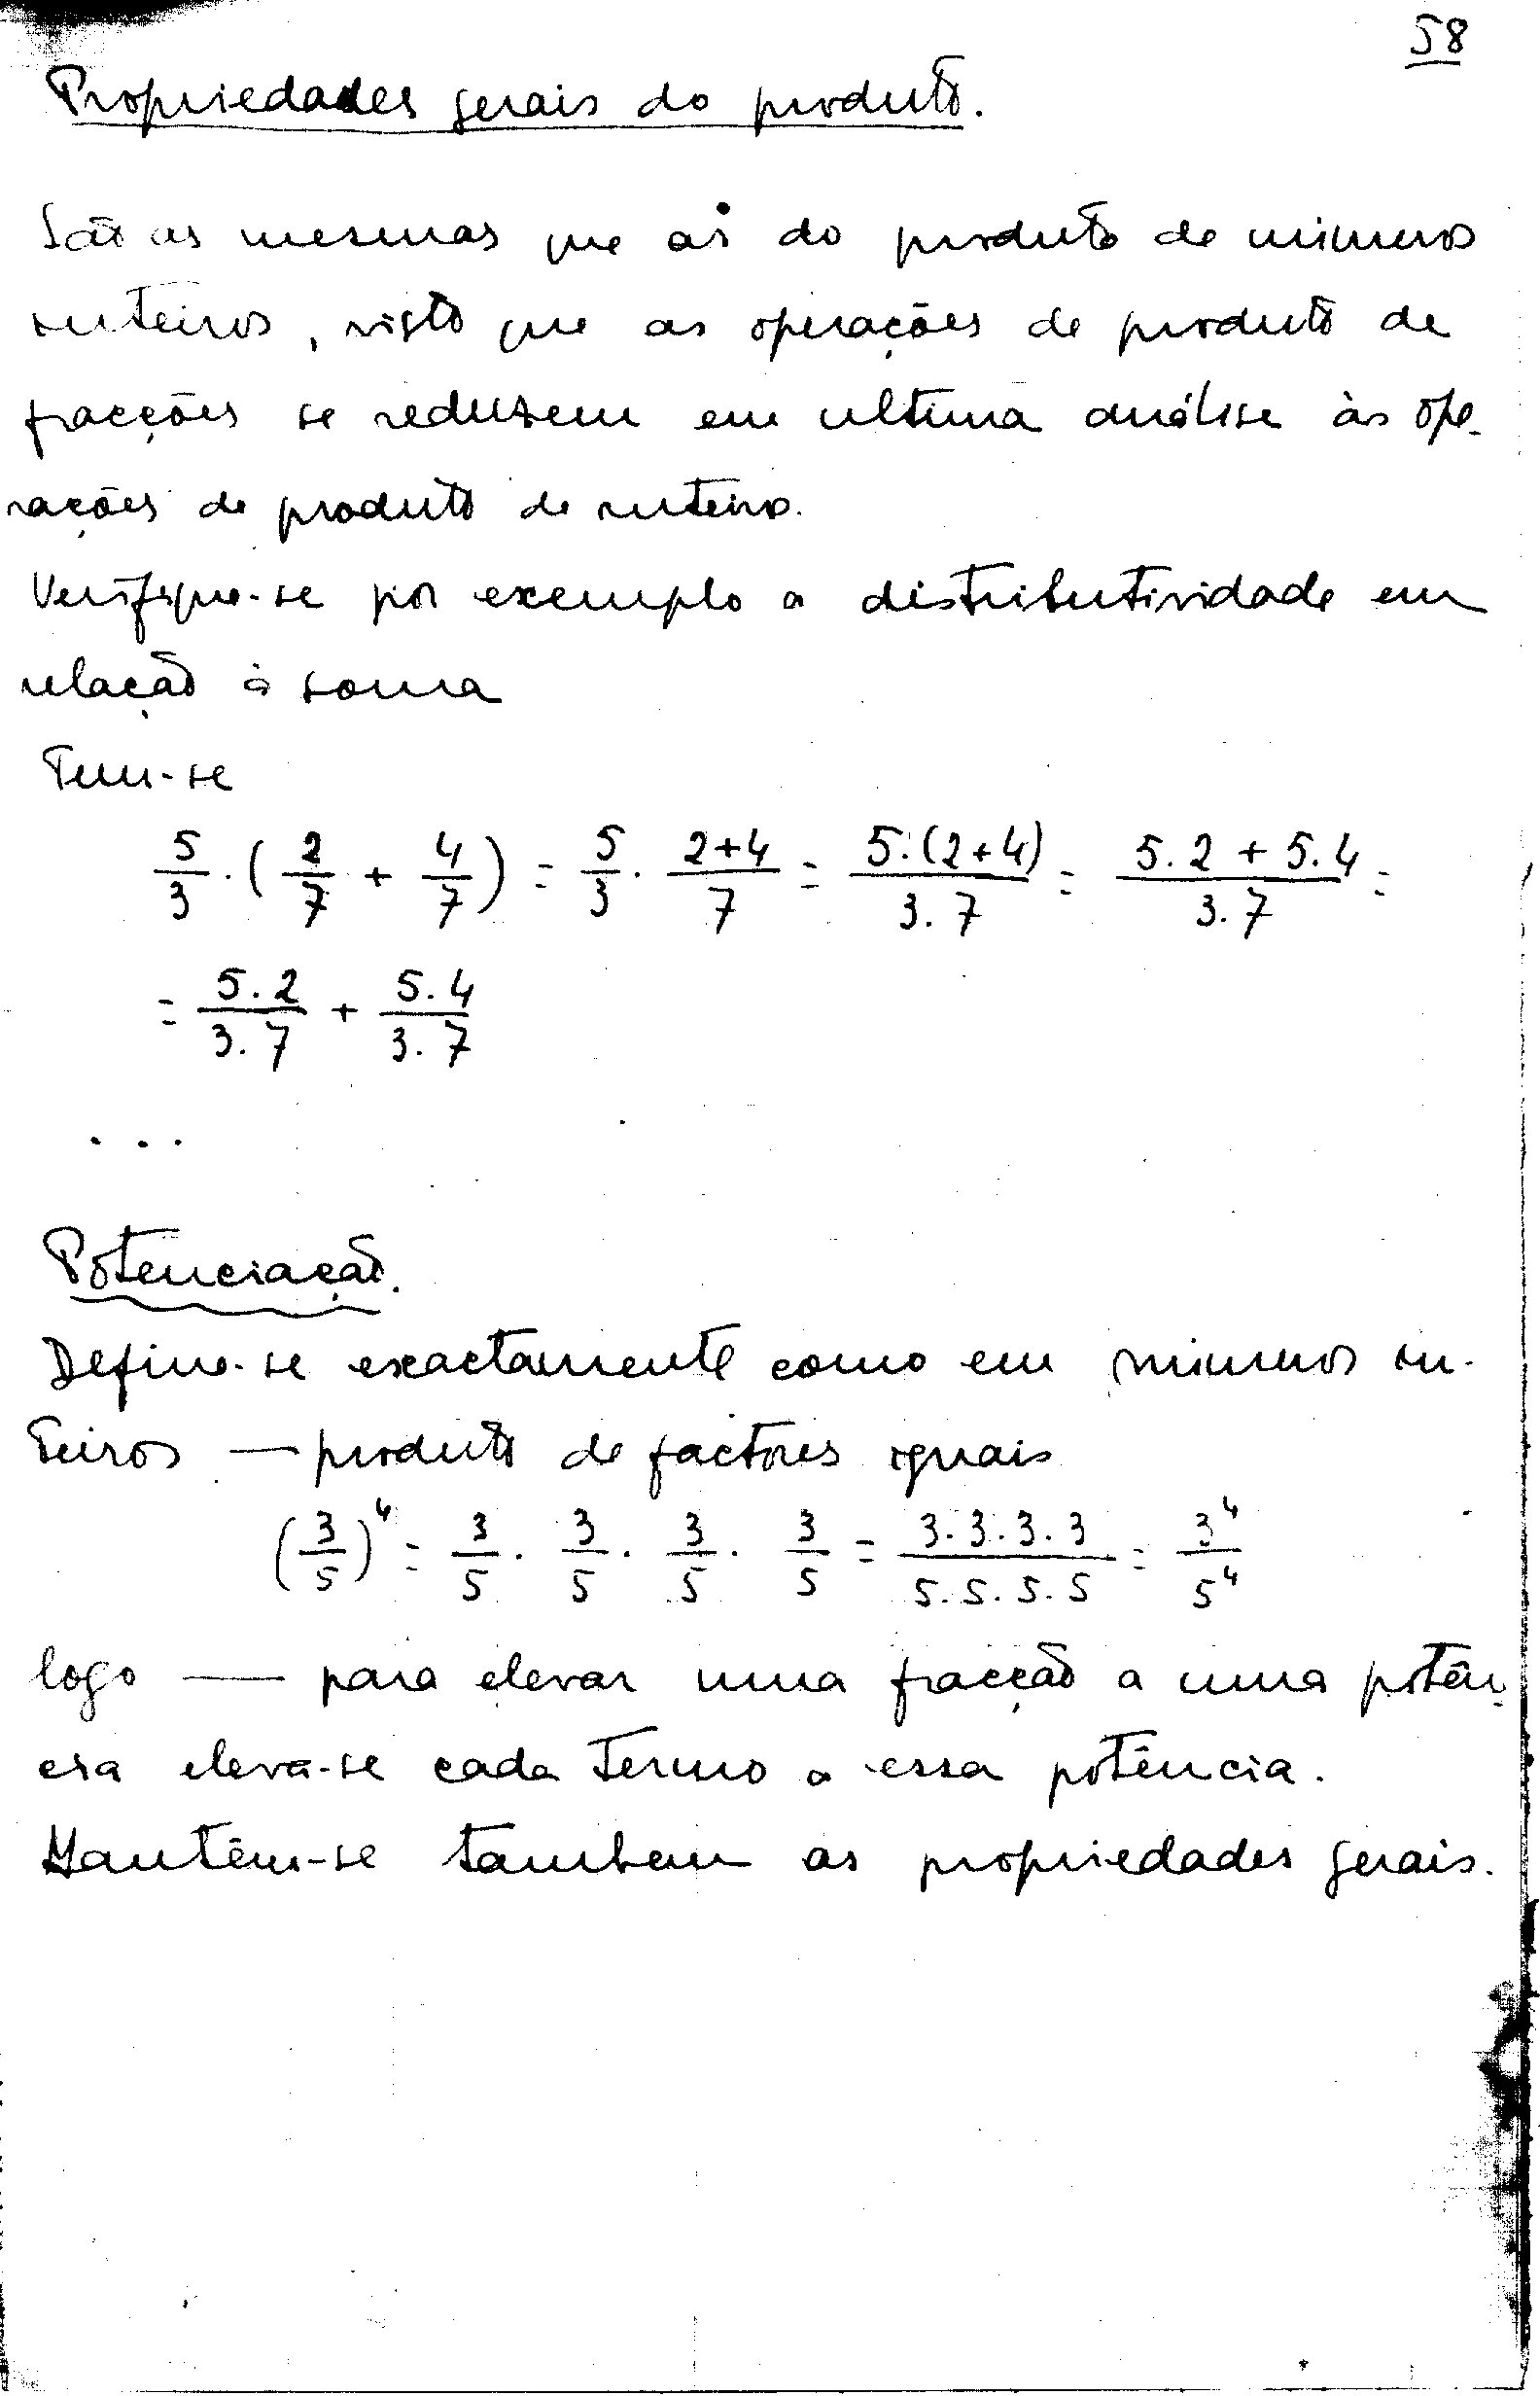 58
Propriedades gerais do produto.
São as mesmas que as do produto de números
inteiros, visto que as operações de produto de
fracções se reduzem em ultima análise às ope-
rações de produto de inteiros.
Verifique-se por exemplo a distributividade em
relação à soma
Tem-se
5/3 . (2/7 + 4/7) = 5/3 . 2+4/7 = 5.(2+4)/3.7 = 5.2 + 5.4/3.7 =
= 5.2/3.7 + 5.4/3.7
...
Potenciação.
Define-se exactamente como em números in-
teiros — produto de factores iguais
(3/5)⁴ = 3/5 . 3/5 . 3/5 . 3/5 = 3.3.3.3/5.5.5.5 = 3⁴/5⁴
logo — para elevar uma fracção a uma potên-
cia eleva-se cada termo a essa potência.
Mantêm-se tambem as propriedades gerais.